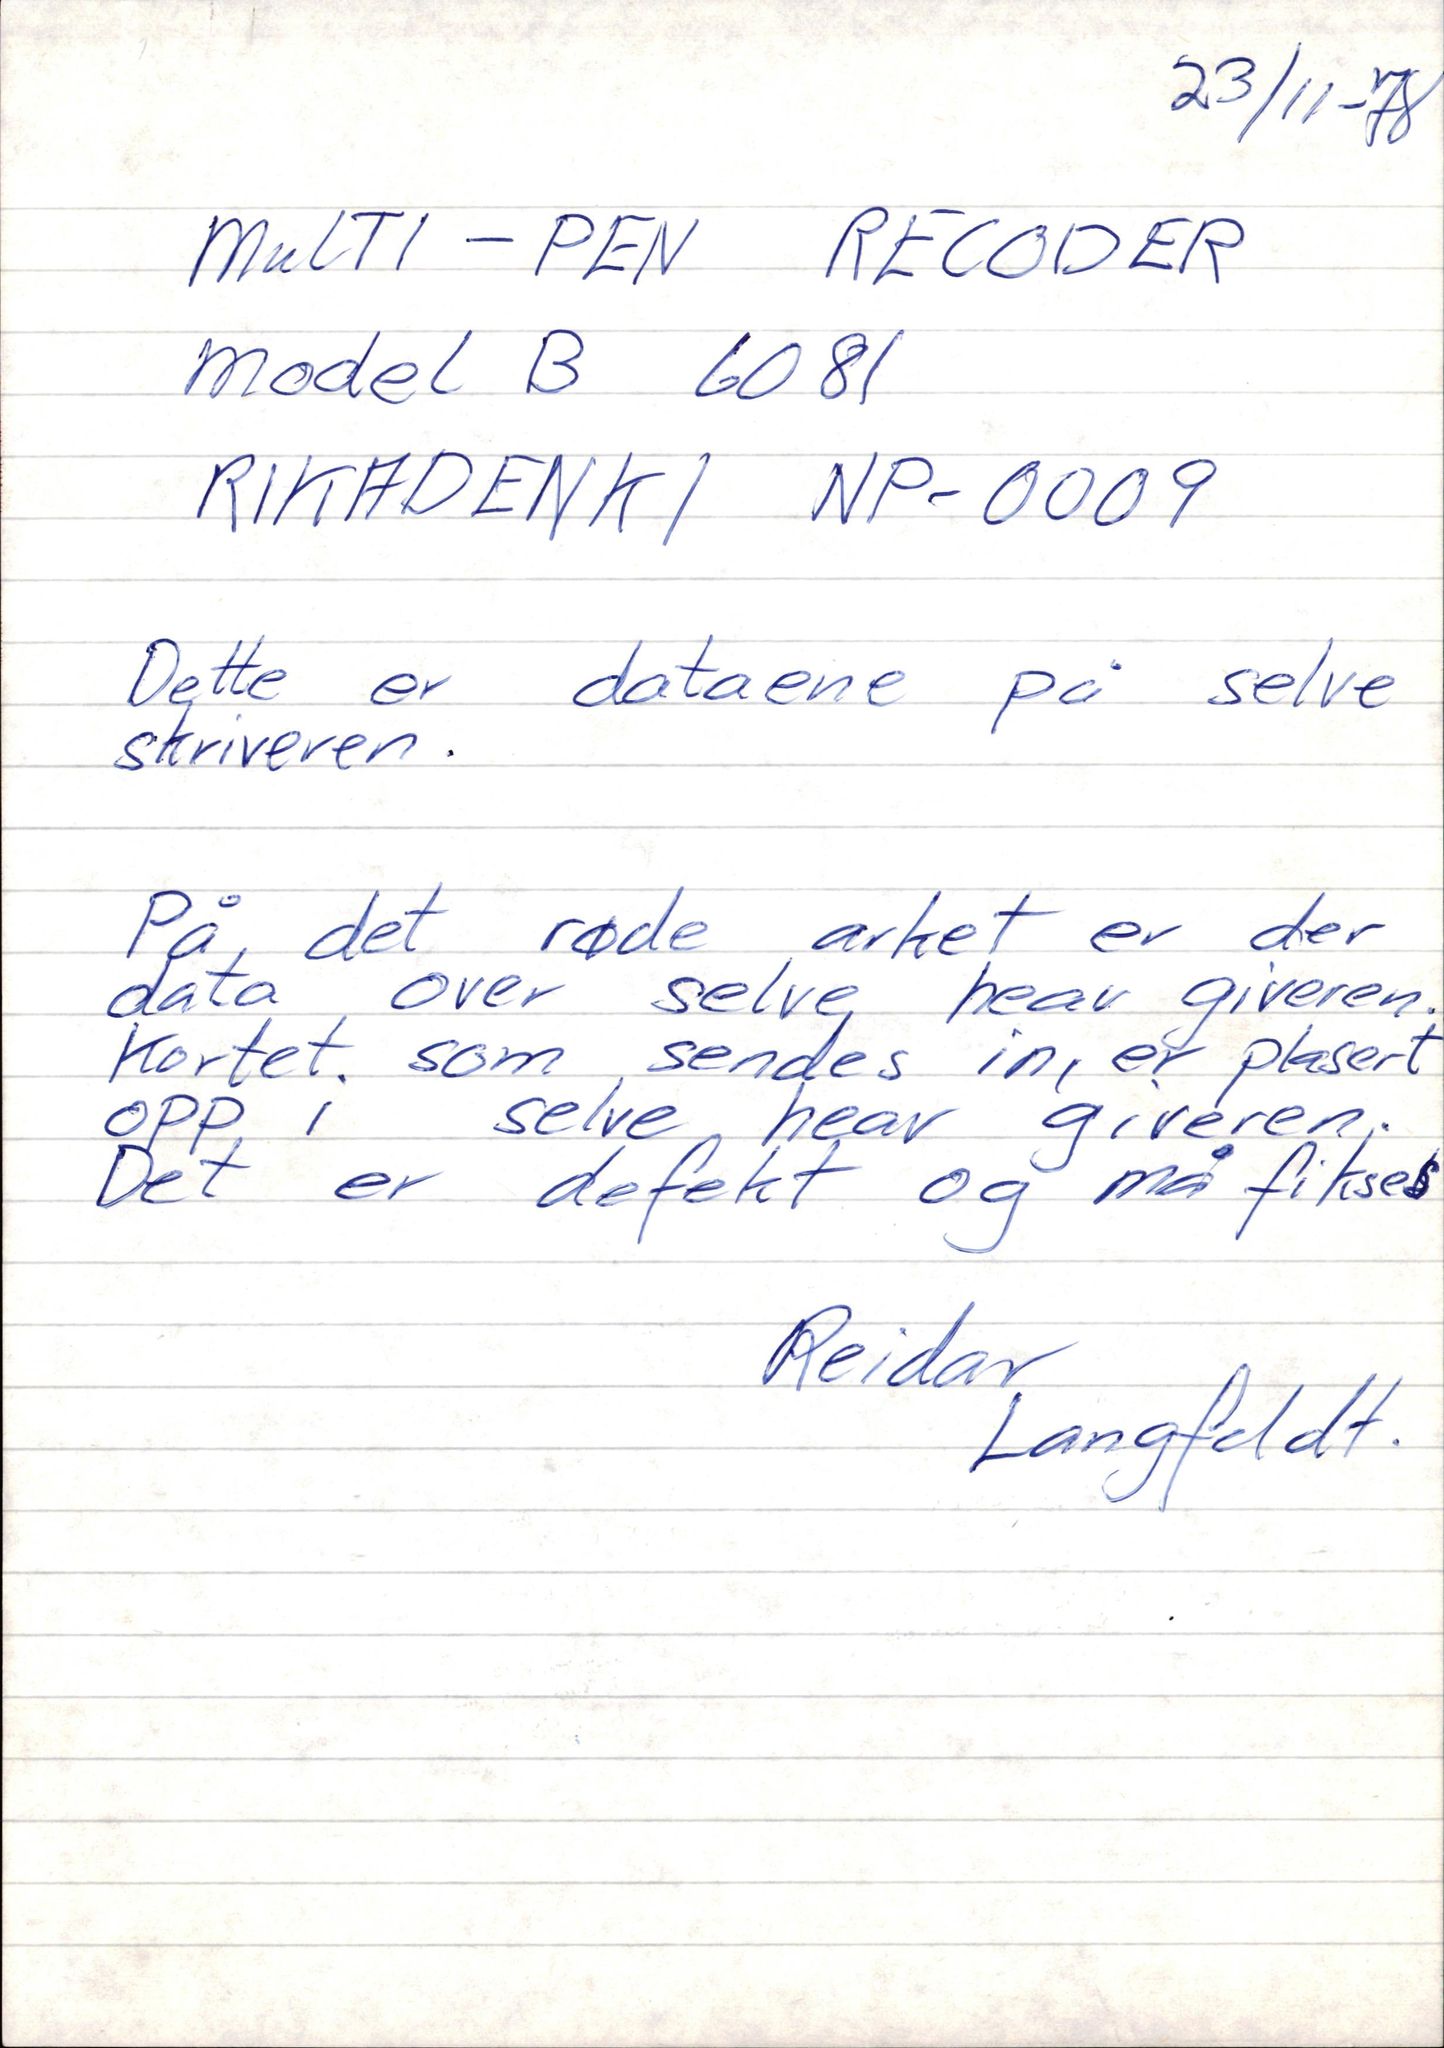 23/11-78
MULTI - PEN RECODER
Model B 6081
RIKADENKI NP-0009
Dette er dataene på selve
skriveren.
På det røde arket er der
data over selve heav giveren.
Kortet. som sendes in, er plasert
opp i selve heav giveren.
Det er defekt og må fikses
Reidar
Langfeldt.